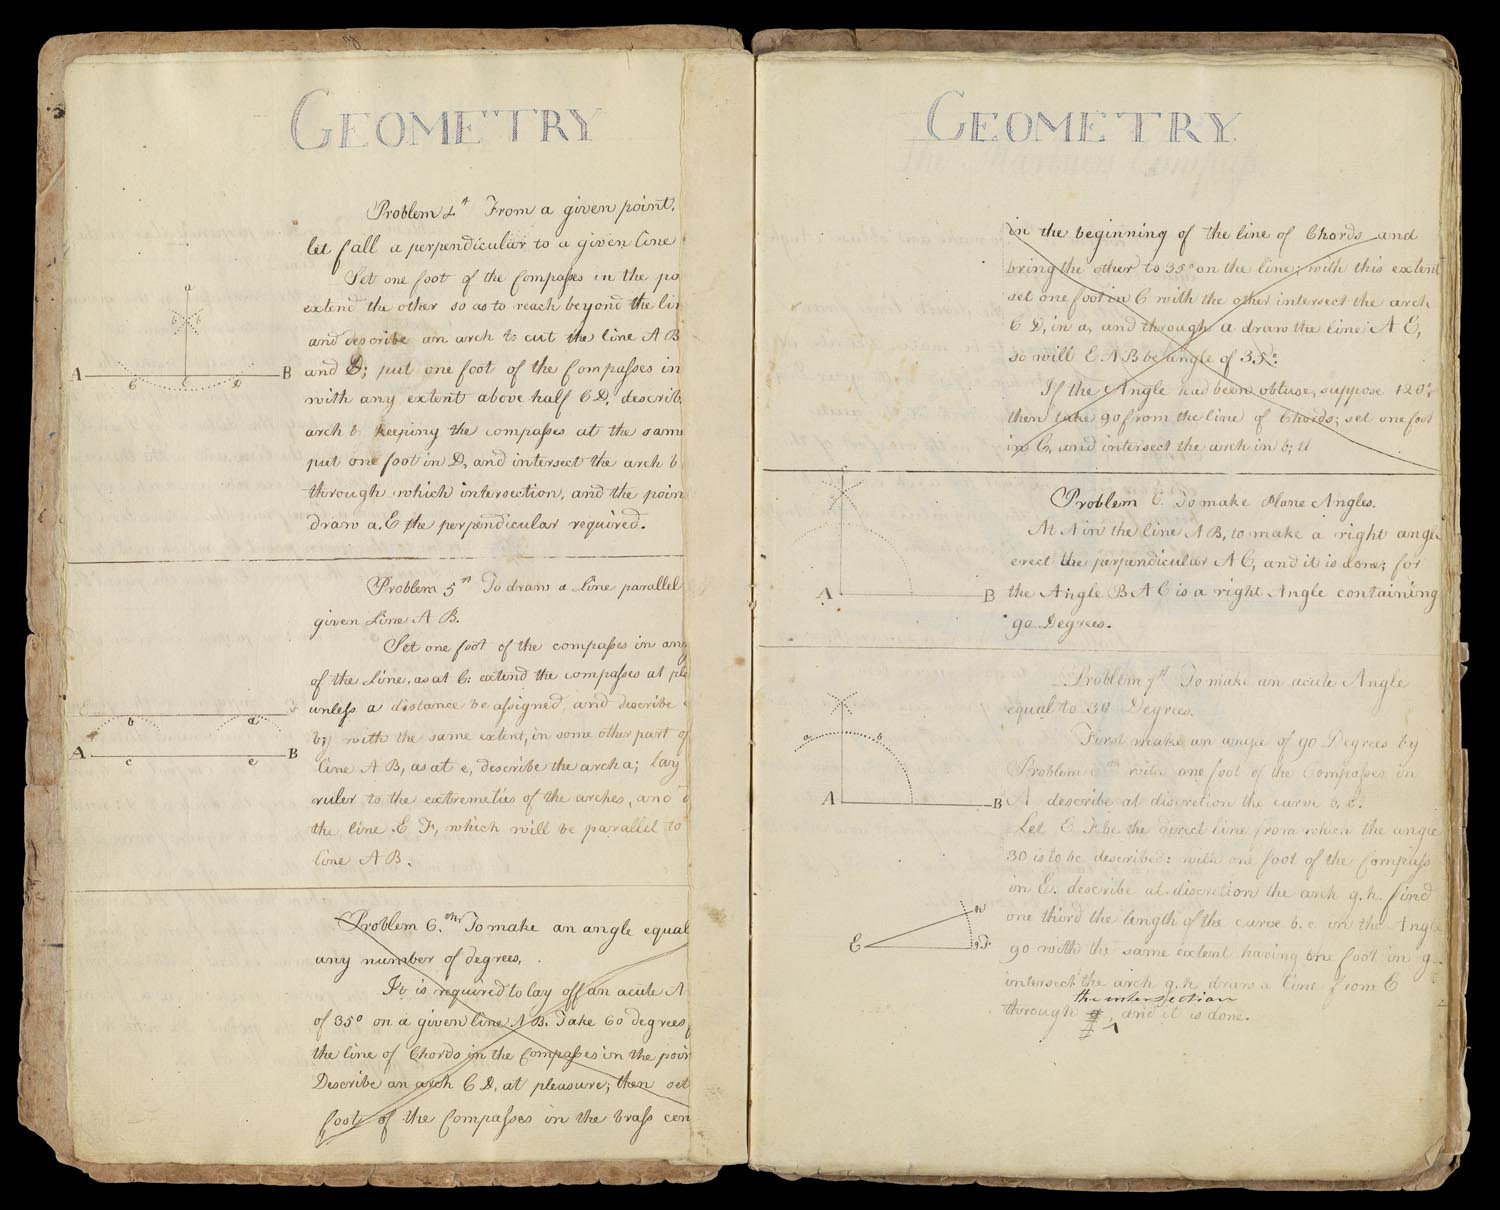 GEOMETRY
Problem 4th From a given point,
let fall a perpendicular to a given line
Set one foot of the Compasses in the po
extend the other so as to reach beyond the lin
and describe an arch to cut the line A B
and D; put one foot of the Compasses in
with any extent above half C D, describ
arch b keeping the compasses at the same
put one foot in D, and intersect the arch b
through which intersection, and the poin
draw a, E the perpendicular required.
a
b b
A B
C E D
Problem 5th To draw a line parallel
given Line A B.
Set one foot of the compasses in any
of the Line, as at C: extend the compasses at ple
unless a distance be assigned, and describe
b; with the same extent, in some other part of
line A B, as at e, describe the arch a; lay
ruler to the extremeties of the arches, and
the line E F, which will be parallel to
line A B.
E F
b a
A B
c e
Problem 6. To make an angle equal
any number of degrees.
It is required to lay off an acute A
of 35° on a given line A B. Take 60 degrees
the line of Chords in the Compasses in the poin
Describe an arch C D, at pleasure; then set
foot of the Compasses in the brass cen
GEOMETRY
in the beginning of the line of Chords and
bring the other to 35° on the line; with this extent
set one foot in C with the other intersect the arch
C D, in a, and through a draw the line A E,
so will E A B be angle of 35°.
If the Angle had been obtuse, suppose 120°,
then take 90 from the line of Chords; set one foot
in C, and intersect the arch in b;
Problem 6. To make Plane Angles.
At A in the line A B, to make a right angle
erect the perpendicular A C, and it is done; for
the Angle B A C is a right Angle containing
90 Degrees.
C
A B
Problem 7th To make an acute Angle
equal to 30 Degrees.
First make an angle of 90 Degrees by
Problem 6th with one foot of the Compasses in
A describe at discretion the curve b, c.
Let E F be the direct line from which the angle
30 is to be described: with one foot of the Compass
in E. describe at discretion the arch g. h. find
one third the length of the curve b. c. in the Angle
90 with the same extent having one foot in g
intersect the arch g. h draw a line from E
the intersection
through , and it is done.
a b
A B
E F